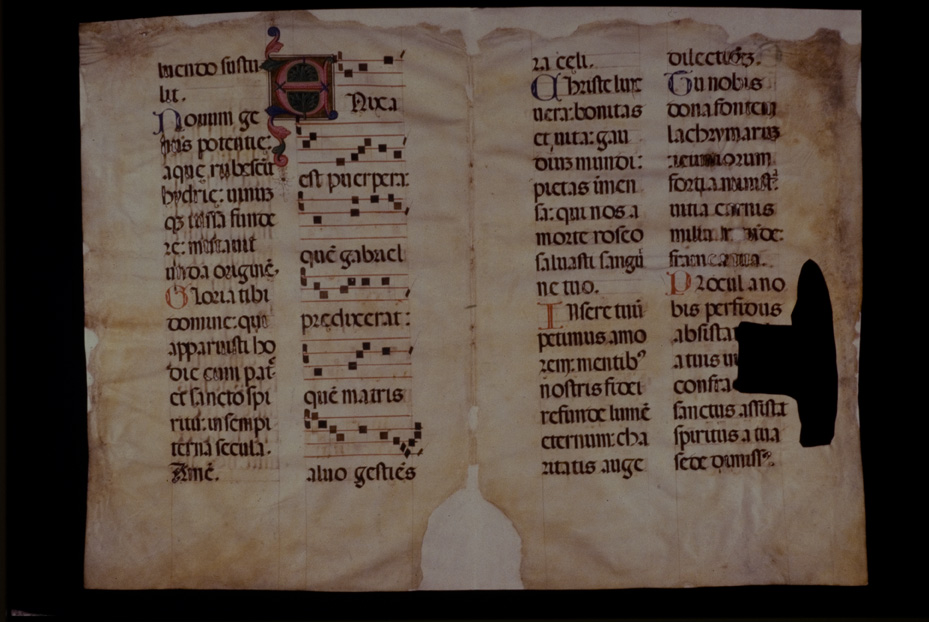 luendo sustu
lit.
Nouum ge
nus potentie:
aque rubescū
hydrie: uinuz
qz iussa funde
re: mutauit
unda originē.
Gloria tibi
domine: qui
apparuisti ho
die cum pat
et sancto spi
ritu: in sempi
terna secula.
Amē.
Enixa
est puerpera:
quē gabriel
predixerat:
quē matris
aluo gestiēs
ra celi.
Christe lux
uera: bonitas
et uita: gau
diuz mundi:
pietas imen
sa: qui nos a
morte roseo
saluasti sangui
ne tuo.
Insere tuū
petimus amo
rem: mentibꝰ
nostris fidei
refunde lumē
eternum: cha
ritatis auge
dilectiōz.
Tu nobis
dona fontem
lachrymaruz
ieiuniorum
fortia
uitia carnis
millia
Procul a no
bis perfidus
absista
a tuis
confra
sanctus assista
spiritus a tua
sede dimissꝰ.